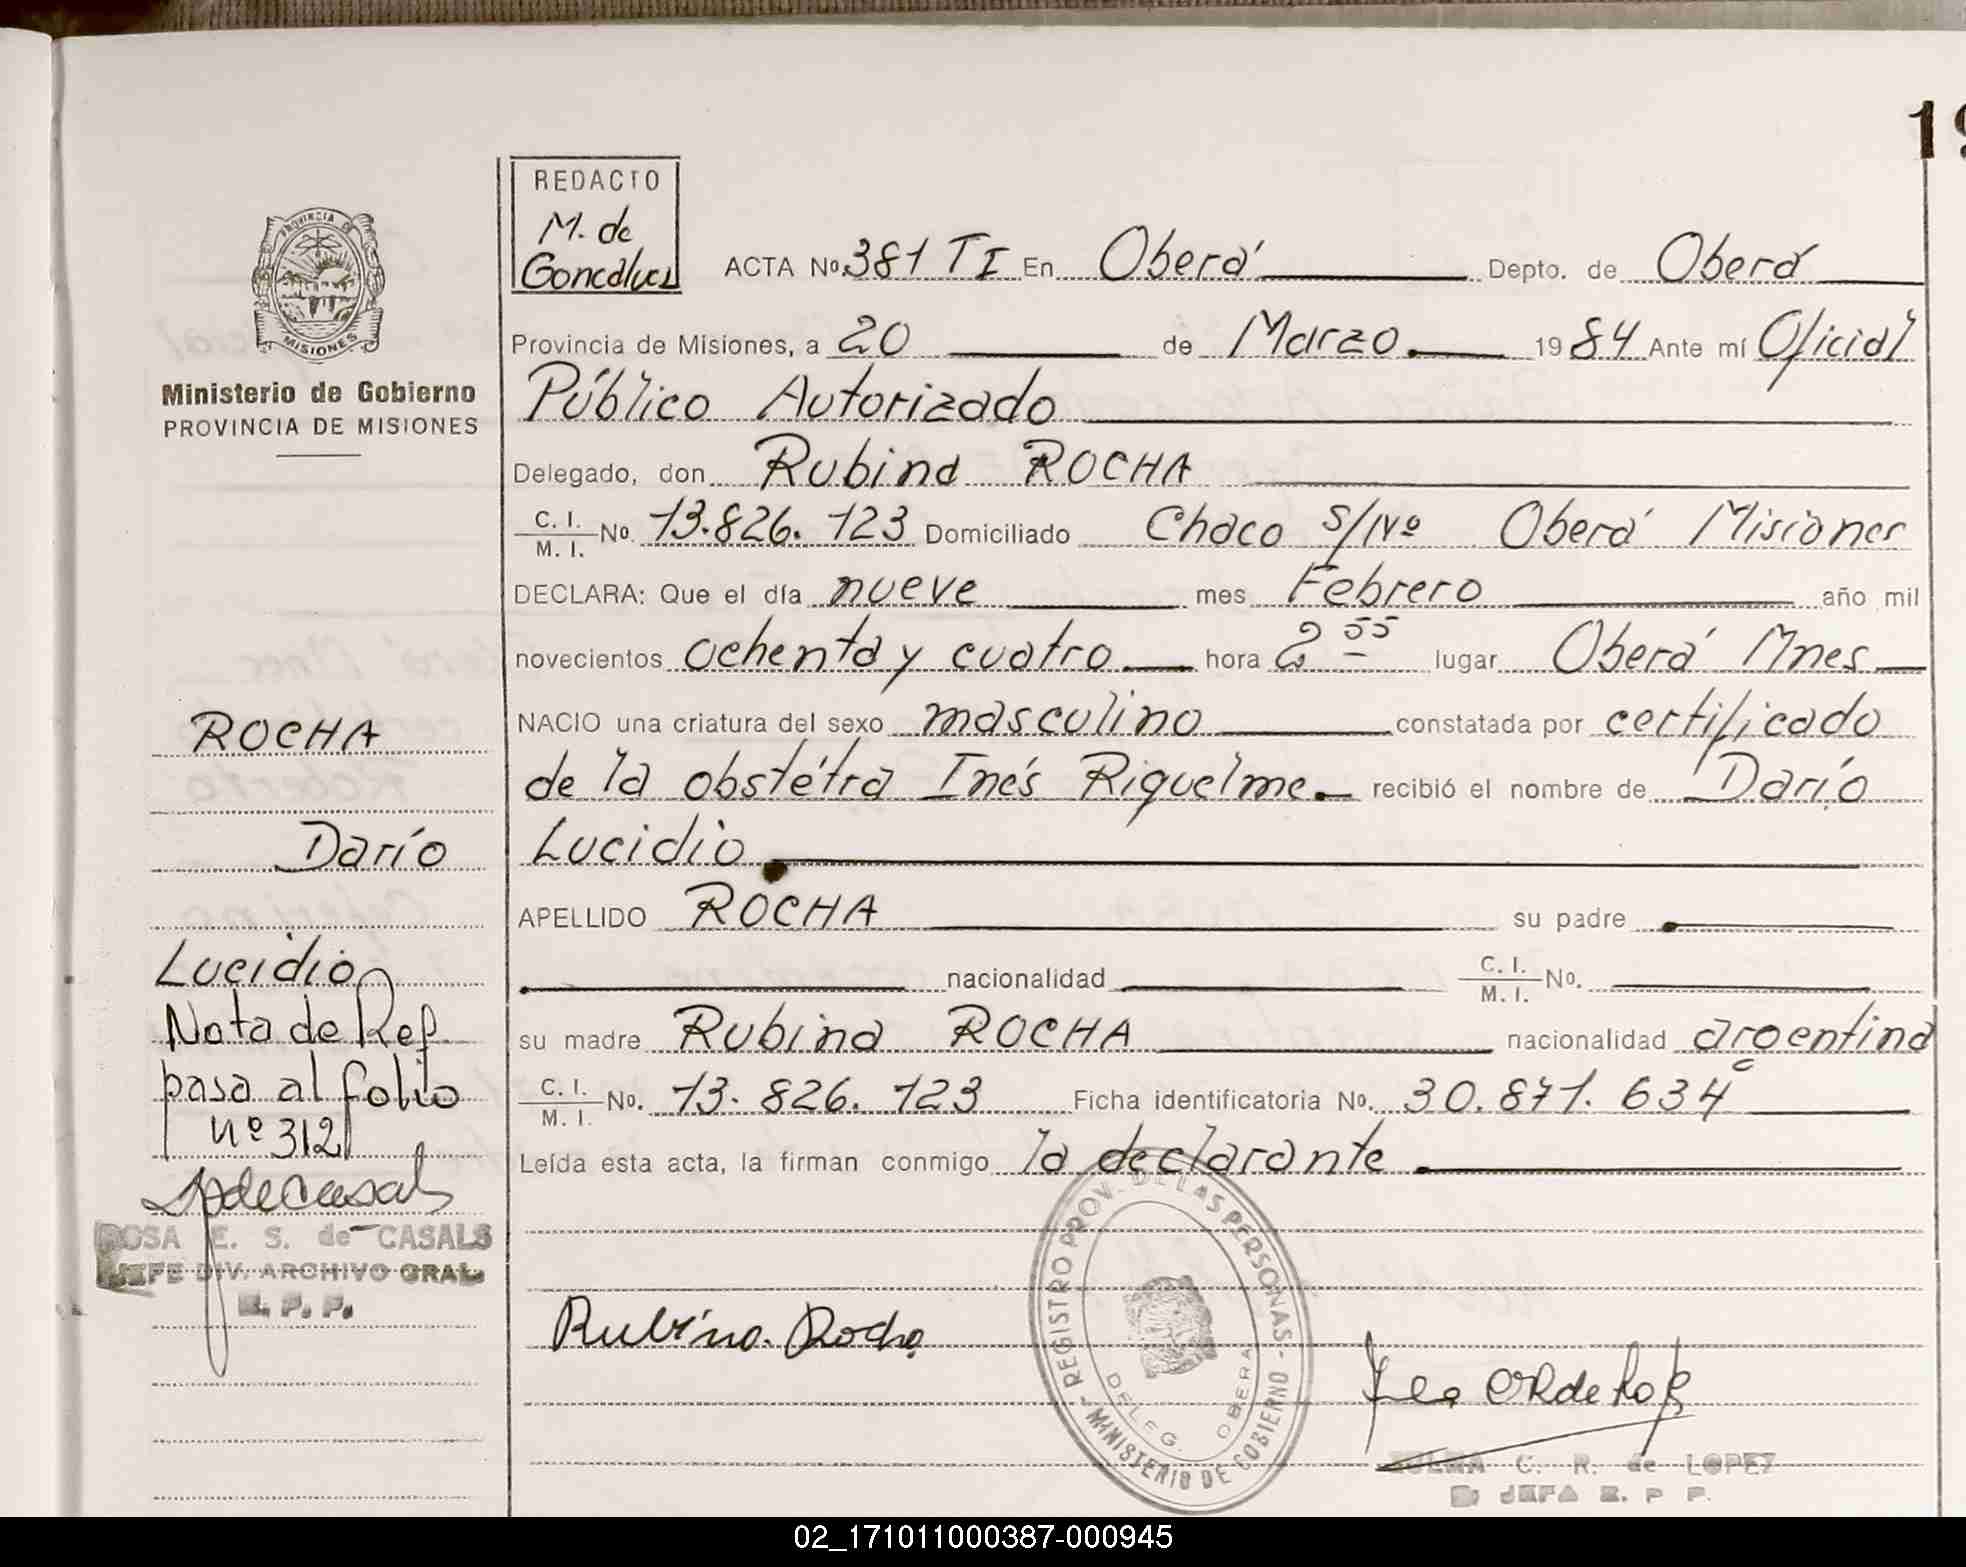 19
REDACTO
M. de
Goncalvez
PROVINCIA DE
MISIONES
Ministerio de Gobierno
PROVINCIA DE MISIONES
ACTA No. 381 TI En Oberá Depto. de Oberá
Provincia de Misiones, a 20 de Marzo 1984 Ante mí Oficial
Público Autorizado
Delegado, don Rubina ROCHA
C. I. / M. I. No. 13.826.123 Domiciliado Chaco S/Nº Oberá Misiones
DECLARA: Que el día nueve mes Febrero año mil
novecientos ochenta y cuatro hora 2 55 lugar Oberá Mnes
NACIO una criatura del sexo masculino constatada por certificado
de la obstétra Inés Riquelme. recibió el nombre de Darío
Lucidio
APELLIDO ROCHA su padre
nacionalidad C. I. / M. I. No.
su madre Rubina ROCHA nacionalidad argentina
C. I. / M. I. No. 13.826.123 Ficha identificatoria No. 30.871.634
Leída esta acta, la firman conmigo la declarante
ROCHA
Darío
Lucidio
Nota de Ref.
pasa al folio
nº 312
ROSA E. S. de CASALS
JEFE DIV. ARCHIVO GRAL.
R. P. P.
Rubina Rocha
REGISTRO PROV. DE LAS PERSONAS - MINISTERIO DE GOBIERNO -
DELEG. OBERA
ZULMA C. R. de LOPEZ
JEFA R. P. P.
02_171011000387-000945